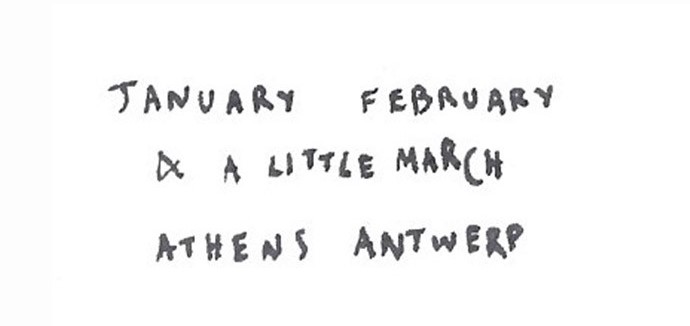 JANUARY FEBRUARY
& A LITTLE MARCH
ATHENS ANTWERP